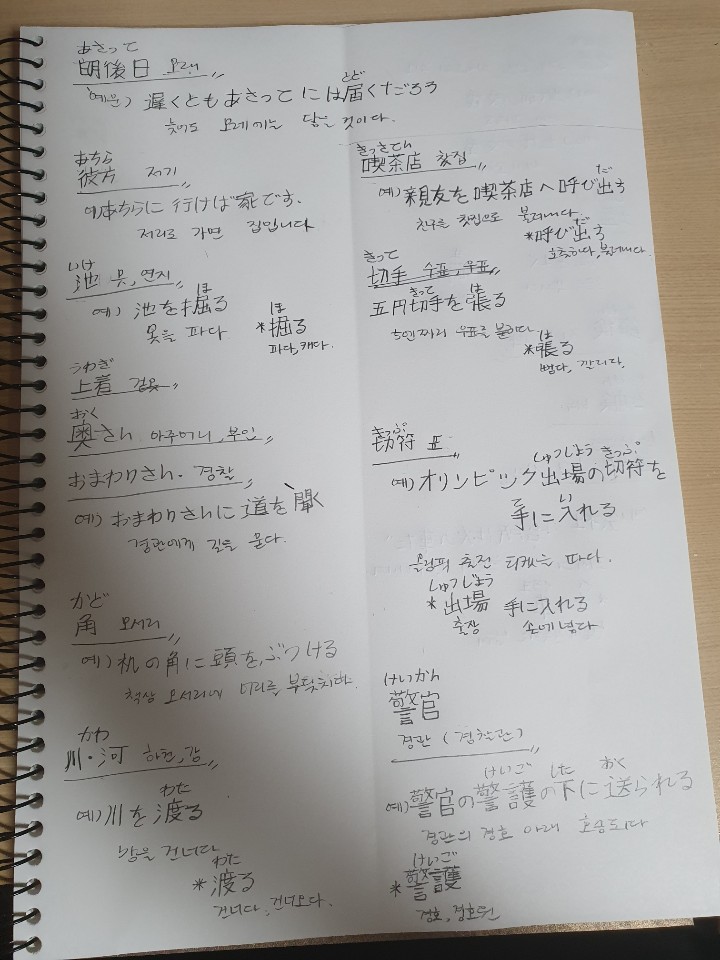 あさって
明後日 모레
예문) 遅くともあさってには届くだろう
とど
늦어도 모레에는 닿을 것이다.
あちら
彼方 저기
예)あちらに行けば家です.
저리로 가면 집입니다
いけ
池 못, 연지
예) 池を掘る
ほ
못을 파다
ほ
*掘る
파다, 캐다.
うわぎ
上着 겉옷
おく
奥さん 아주머니, 부인
おまわりさん. 경찰
예) おまわりさんに道を聞く
경관에게 길을 묻다.
かど
角 모서리
예) 机の角に頭をぶつける
책상 모서리에 머리를 부딪치다.
かわ
川・河 하천, 강
예)川を渡る
わた
강을 건너다
わた
*渡る
건너다, 건너오다.
きっさてん
喫茶店 찻집
예) 親友を喫茶店へ呼び出す
だ
친구를 찻집으로 불러내다.
だ
*呼び出す
호출하다, 불러내다.
きって
切手 수표, 우표
五円切手を張る
きって は
5엔짜리 우표를 붙이다
は
*張る
뻗다, 깔리다.
きっぷ
切符 표
예) オリンピック出場の切符を
しゅつじょう きっぷ
手に入れる
て い
올림픽 출전 티켓을 따다.
しゅつじょう
*出場 手に入れる
출장 손에 넣다
けいかん
警官
경관 (경찰관)
예)警官の警護の下に送られる
けいご した おく
경관의 경호 아래 호송되다
けいご
*警護
경호, 경호원